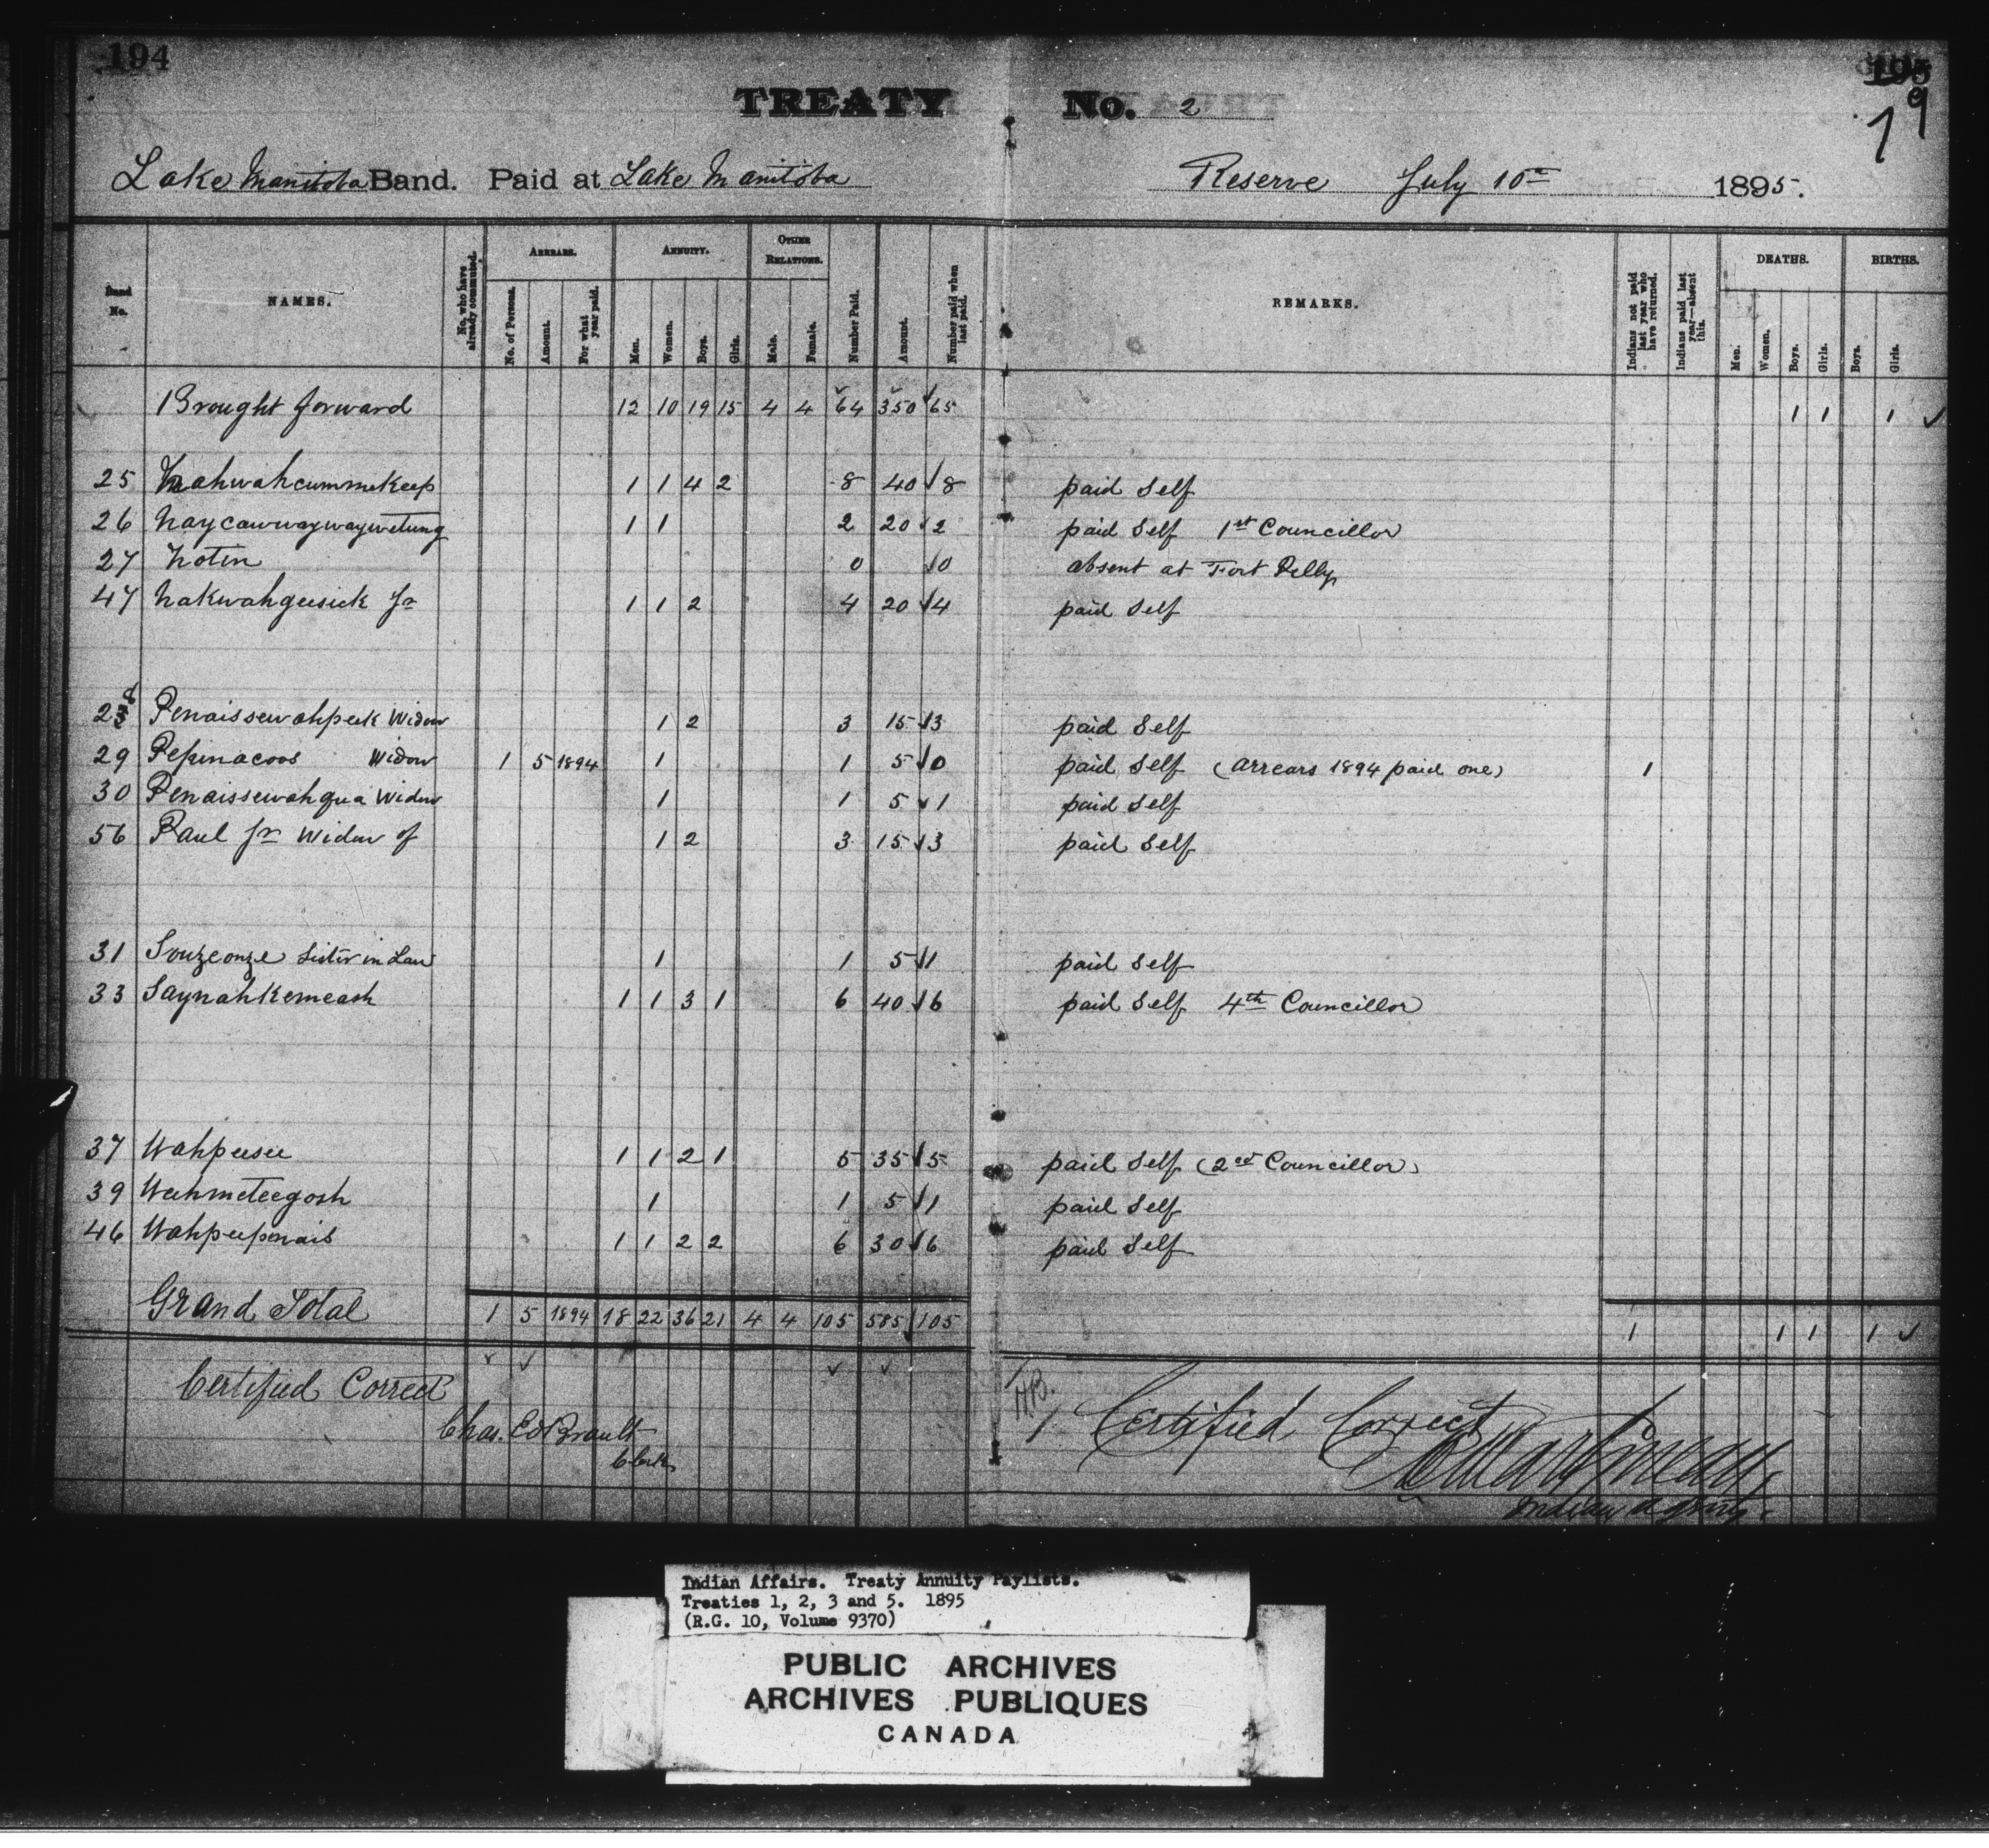 194
195
19
TREATY No. 2
Lake Manitoba Band. Paid at Lake Manitoba Reserve July 10th 1895.
Band No. NAMES. No. who have already commuted. ARREARS. No. of Persons. Amount. For what year paid. ANNUITY. Men. Women. Boys. Girls. OTHER RELATIONS. Male. Female. Number Paid. Amount. Number paid when last paid. REMARKS. Indians not paid last year who have returned. Indians paid last year—absent this. DEATHS. Men. Women. Boys. Girls. BIRTHS. Boys. Girls.
Brought forward 12 10 19 15 4 4 64 350 √ 65 1 1 1 ✓
25 Mahwahcummekeep 1 1 4 2 8 40 √ 8 paid Self
26 Naycawwaywaywetung 1 1 2 20 √ 2 paid Self 1st Councillor
27 Notin 0 √ 0 absent at Fort Pelly
47 Nakwahgeesick Jr 1 1 2 4 20 √ 4 paid Self
28 Penaissewahpeek Widow 1 2 3 15 √ 3 paid Self
29 Pepinacoos Widow 1 5 1894 1 1 5 √ 0 paid Self (arrears 1894 paid one) 1
30 Penaissewahqua Widow 1 1 5 √ 1 paid Self
56 Paul Jr Widow of 1 2 3 15 √ 3 paid Self
31 Souzeonze Sister in Law 1 1 5 √ 1 paid Self
33 Saynahkemeash 1 1 3 1 6 40 √ 6 paid Self 4th Councillor
37 Wahpeesee 1 1 2 1 5 35 √ 5 paid Self (2nd Councillor)
39 Wahmeteegosh 1 1 5 √ 1 paid Self
46 Wahpeepenais 1 1 2 2 6 30 √ 6 paid Self
Grand Total 1 5 1894 18 22 36 21 4 4 105 585 √ 105 1 1 1 1 ✓
✓ ✓ ✓ ✓
Certified Correct
Chas. Ed Brault
Clerk
Certified Correct
Martineau
Indian Agent
Indian Affairs. Treaty Annuity Paylists.
Treaties 1, 2, 3 and 5. 1895
(R.G. 10, Volume 9370)
PUBLIC ARCHIVES
ARCHIVES PUBLIQUES
CANADA